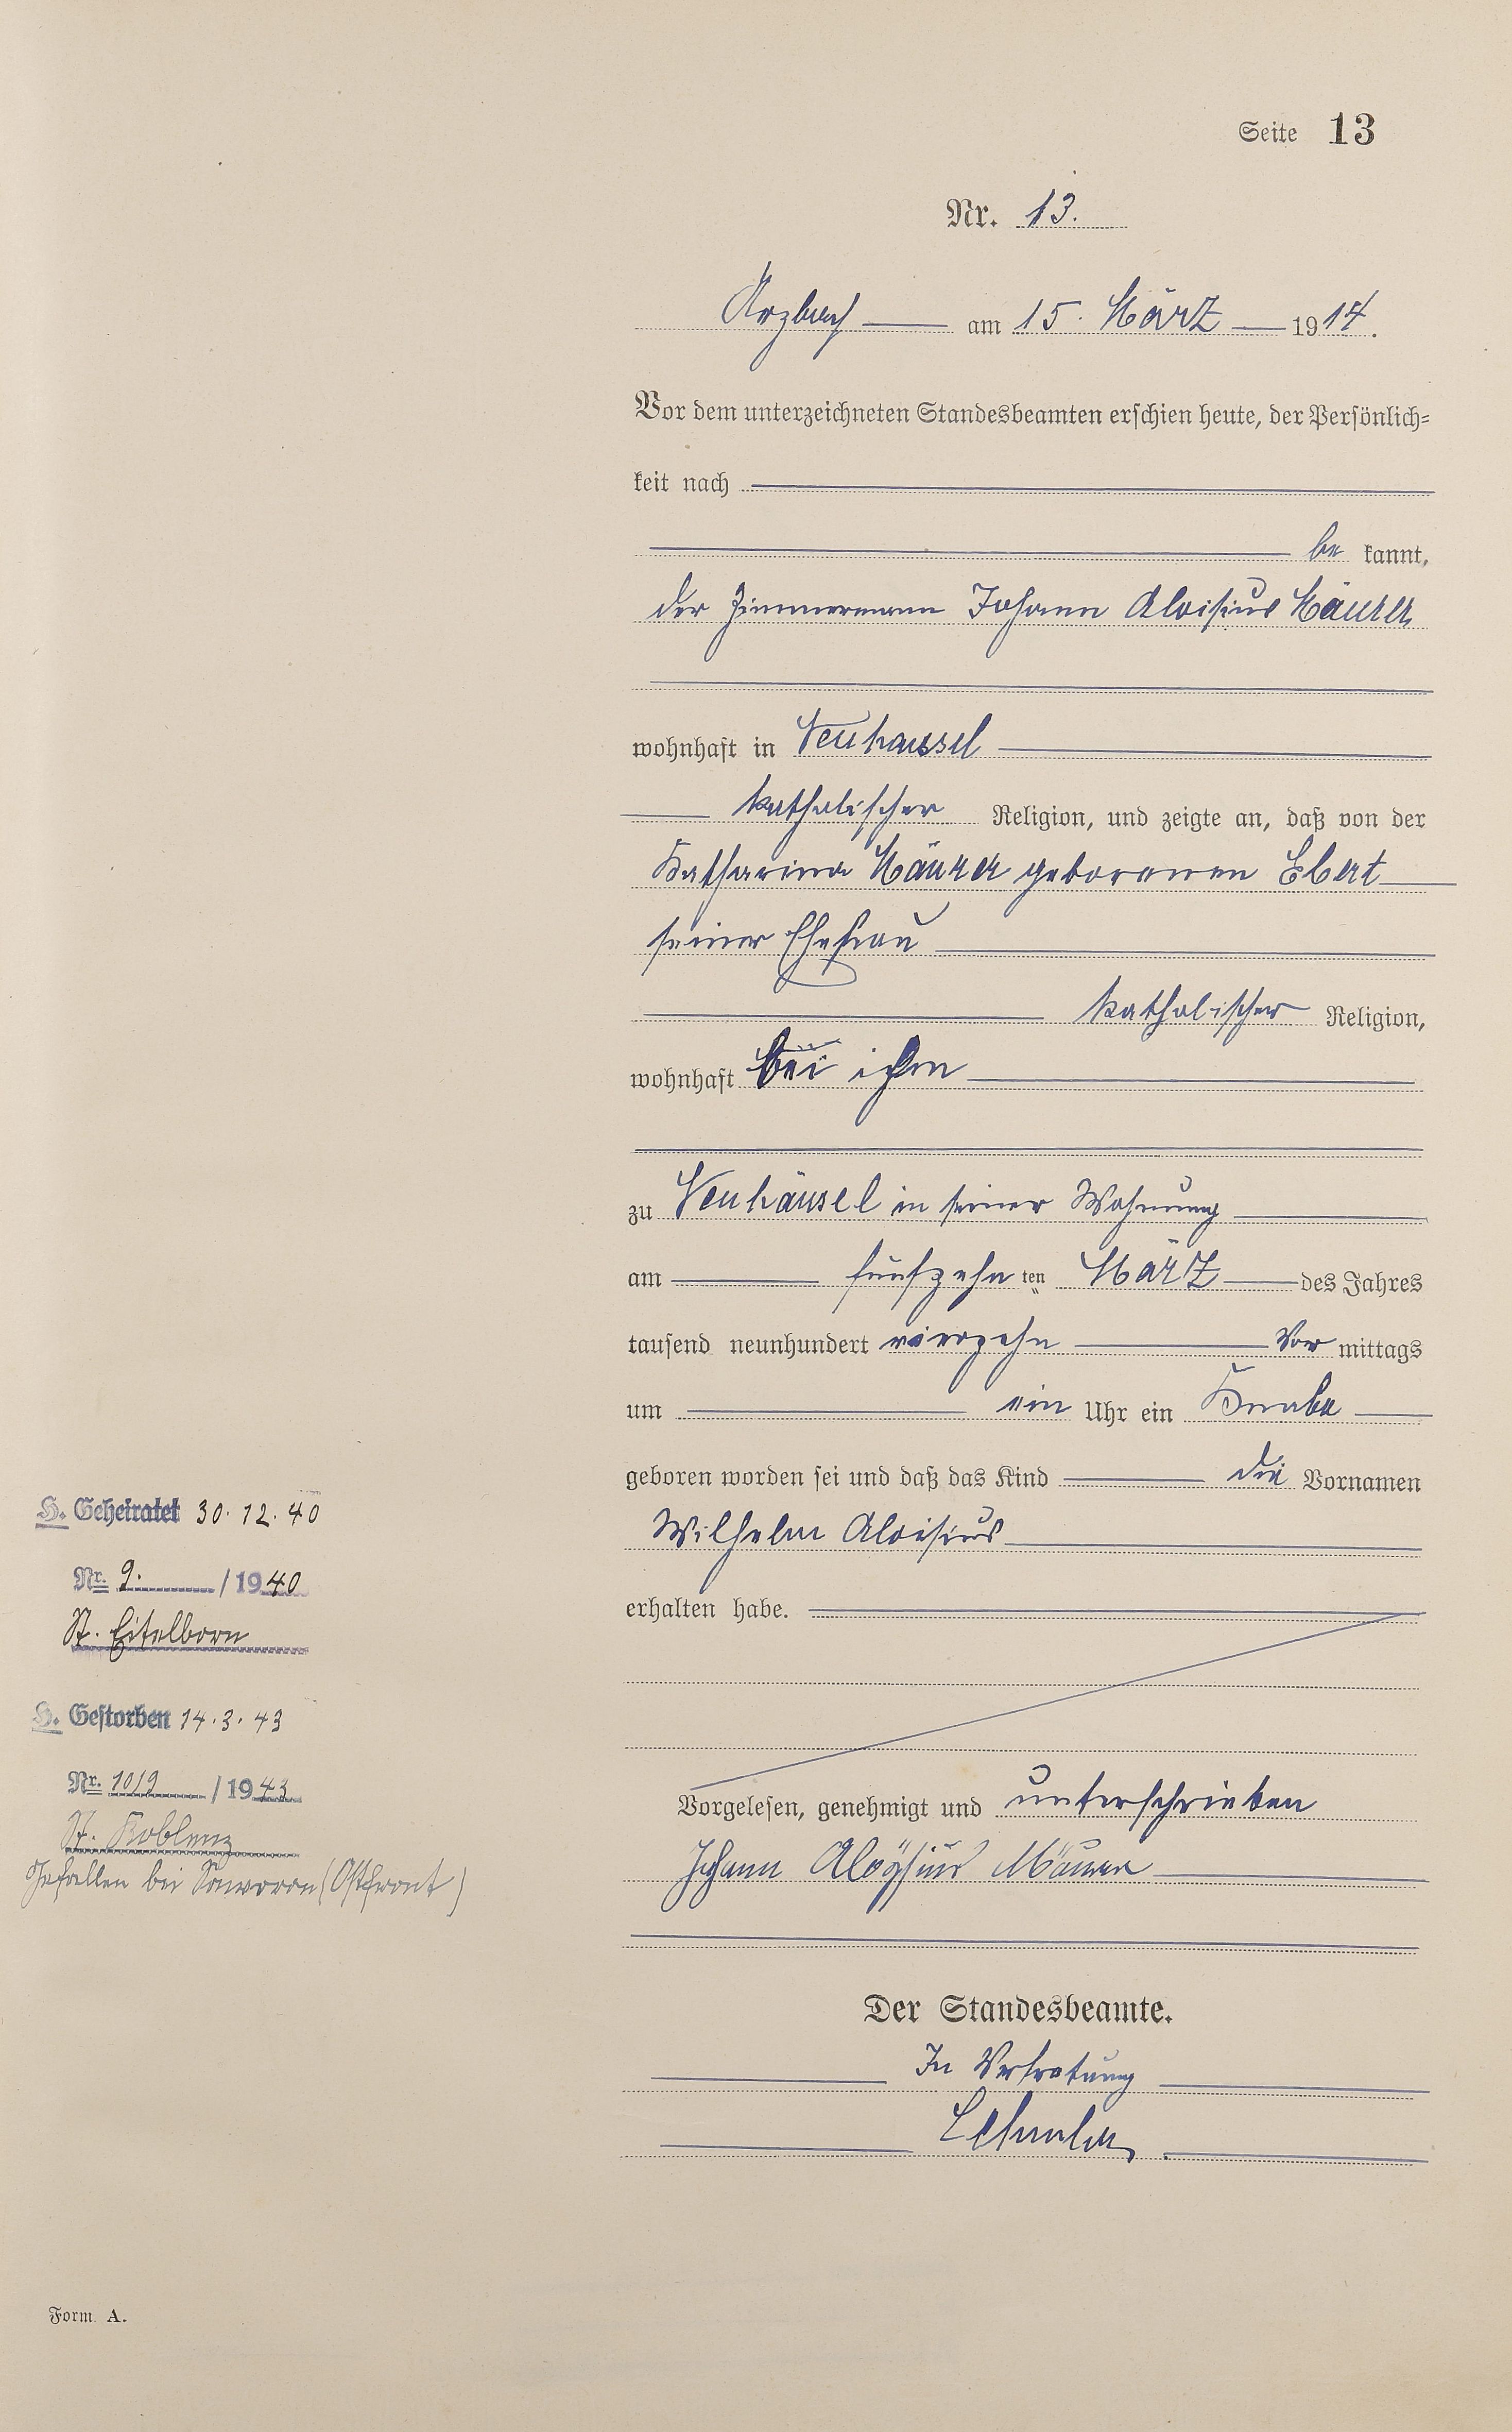 Seite 13
Nr. 13.
Arzbach am 15. März 1914.
Vor dem unterzeichneten Standesbeamten erschien heute, der Persönlich-
keit nach
be kannt,
der Zimmermann Johann Aloisius Mäurer
wohnhaft in Neuhäusel
katholischer Religion, und zeigte an, daß von der
Katharina Mäurer geborenen Ebert
seiner Ehefrau
katholischer Religion,
wohnhaft bei ihm
zu Neuhäusel in seiner Wohnung
am fünfzehn ten März des Jahres
tausend neunhundert vierzehn Vor mittags
um ein Uhr ein Knabe
geboren worden sei und daß das Kind die Vornamen
Wilhelm Aloisius
erhalten habe.
Vorgelesen, genehmigt und unterschrieben
Johann Aloysius Mäurer
Der Standesbeamte.
In Vertretung
H. Geheiratet 30.12.40
Nr. 9. / 1940
St. Eitelborn
H. Gestorben 14.3.43
Nr. 1019 / 1943
St. Koblenz
Gefallen bei (Ostfront)
Form A.